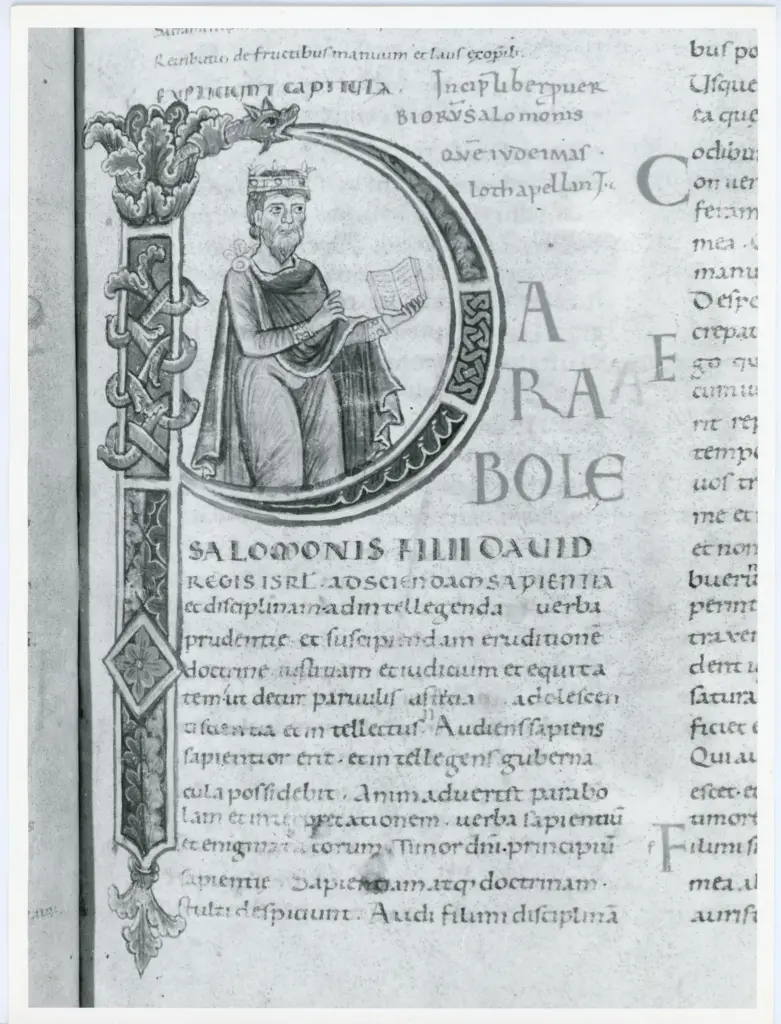 Retributio de fructibus manuum et laus ęcop̄ib.
EXPLICIUNT CAPITULA. Incip̄ liber puer
BIORŪ SALOMONIS
QUE IUDEI MAS
loth appellant
P
A
RA
BOLE
SALOMONIS FILII DAVID
REGIS ISRL̄. AD SCIENDAM SAPIENTIĀ
et disciplinam ad intellegenda uerba
prudentie et suscipiendam eruditionē
doctrine iustitiam et iudicium et equita
tem ut detur paruulis astutia adolescen
ti scientia et intellectus. Audiens sapiens
sapientior erit. et intellegens guberna
cula possidebit. Animaduertet parabo
lam et interpretationem. uerba sapientiū
et enigmata eorum. Timor dn̄i. principiū
sapientie. Sapientiam atq; doctrinam.
stulti despiciunt. Audi fili mi disciplinā
bus po
Usque
ea que
odibu
C
on uer
feram
mea.
manu
Despe
crepat
E
go qu
cum
rit rep
tempe
uos tr
me et
et non
buerūt
perint
traxer
dent
satura
ficiet
Qui au
escet. et
timore
F
ili mi si
mea
aurisi